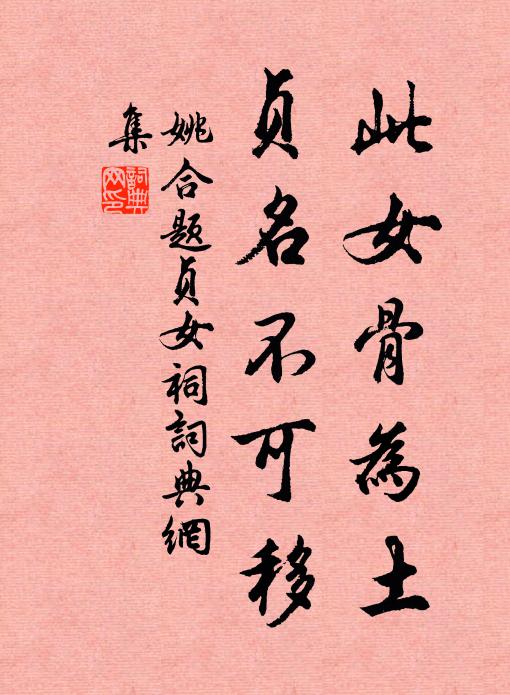 此女骨為土
貞名不可移
姚合題貞女祠詞典網
集
詞典
网印